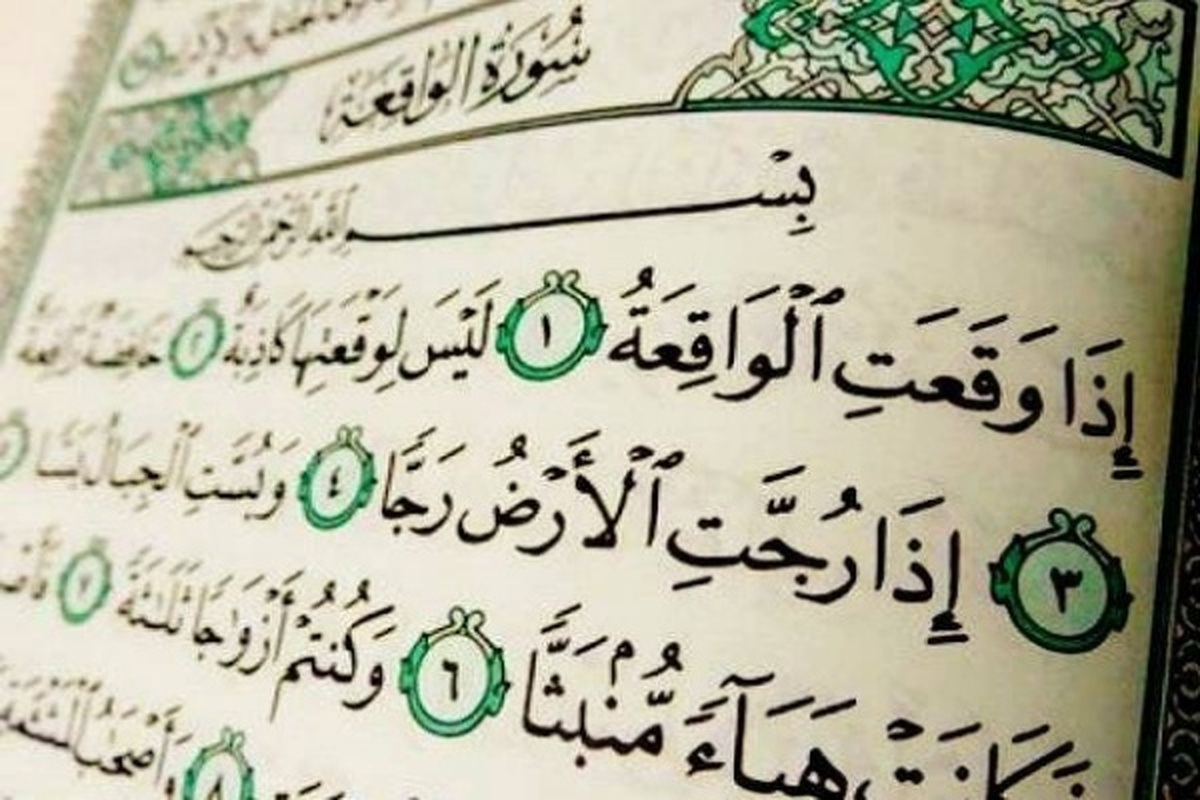 سُورَةُ الوَاقِعَةِ
بِسْمِ ٱللَّهِ ٱلرَّحْمَٰنِ ٱلرَّحِيمِ
إِذَا وَقَعَتِ ٱلْوَاقِعَةُ ١ لَيْسَ لِوَقْعَتِهَا كَاذِبَةٌ ٢ خَافِضَةٌ رَّافِعَةٌ
٣ إِذَا رُجَّتِ ٱلْأَرْضُ رَجًّا ٤ وَبُسَّتِ ٱلْجِبَالُ بَسًّا ٥
فَكَانَتْ هَبَآءً مُّنۢبَثًّا ٦ وَكُنتُمْ أَزْوَٰجًا ثَلَٰثَةً ٧
٨ وَأَصْحَٰبُ ٱلْمَشْـَٔمَةِ